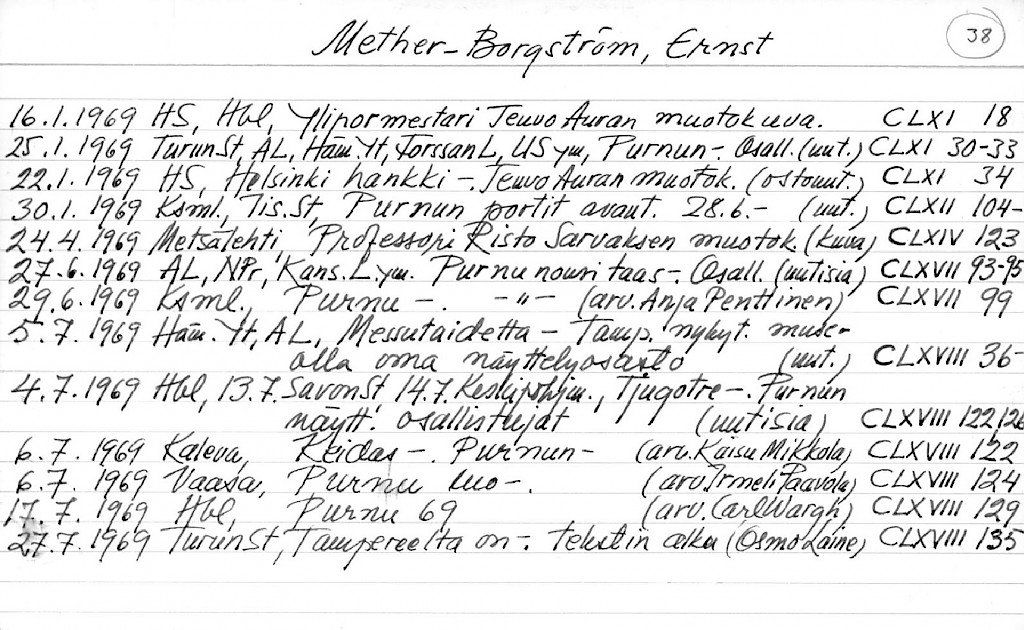 38
Mether-Borgström, Ernst
16.1.1969 HS, Hbl, Ylipormestari Teuvo Auran muotokuva. CLXI 18
25.1.1969 TurunSt, AL, Häm.Yt, ForssanL, US ym, Purnun-. Osall. (uut.) CLXI 30-33
22.1.1969 HS, Helsinki hankki-. Teuvo Auran muotok. (ostouut.) CLXI 34
30.1.1969 Ksml., Tis.St, Purnun portit avaut. 28.6.- (uut.) CLXII 104-
24.4.1969 Metsälehti, Professori Risto Sarvaksen muotok. (kuva) CLXIV 123
27.6.1969 AL, NPr, Kans.L ym. Purnu nousi taas-. Osall. (uutisia) CLXVII 93-95
29.6.1969 Ksml., Purnu -. -"- (arv. Anja Penttinen) CLXVII 99
5.7.1969 Häm.Yt, AL, Messutaidetta - Tamp. nykyt. muse-
olla oma näyttelyosasto (uut.) CLXVIII 36-
4.7.1969 Hbl, 13.7. SavonSt, 14.7. Keskipohjm., Tjugotre-. Purnun
näytt. osallistujat (uutisia) CLXVIII 122,126
6.7.1969 Kaleva, Keidas-. Purnun- (arv. Kaisu Mikkola) CLXVIII 122
6.7.1969 Vaasa, Purnu luo-. (arv. Irmeli Paavola) CLXVIII 124
17.7.1969 Hbl, Purnu 69 (arv. Carl Wargh) CLXVIII 129
27.7.1969 TurunSt, Tampereelta on-. tekstin alku (Osmo Laine) CLXVIII 135